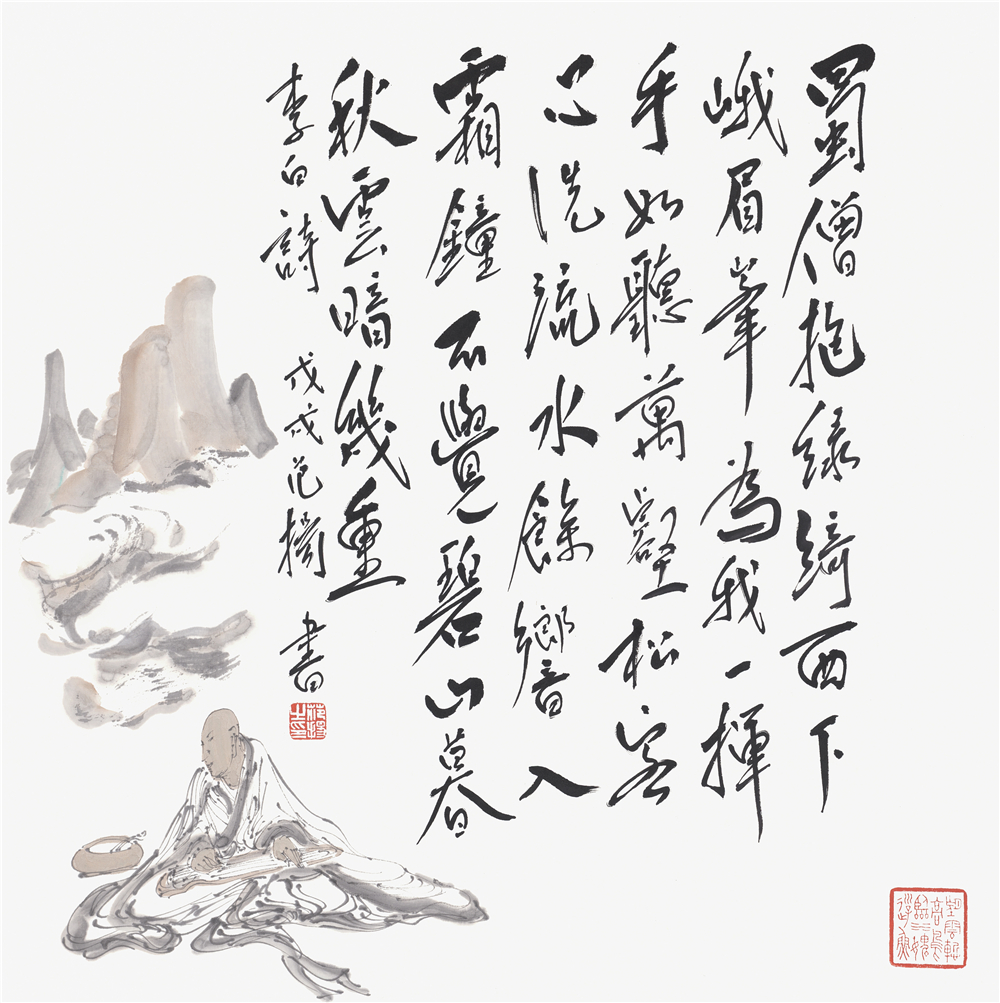 蜀僧抱綠綺西下
峨眉峯為我一揮
手如聽萬壑松客
心洗流水餘響入
霜鐘不覺碧山暮
秋雲暗幾重
李白詩 戊戌范揚書
范揚之印